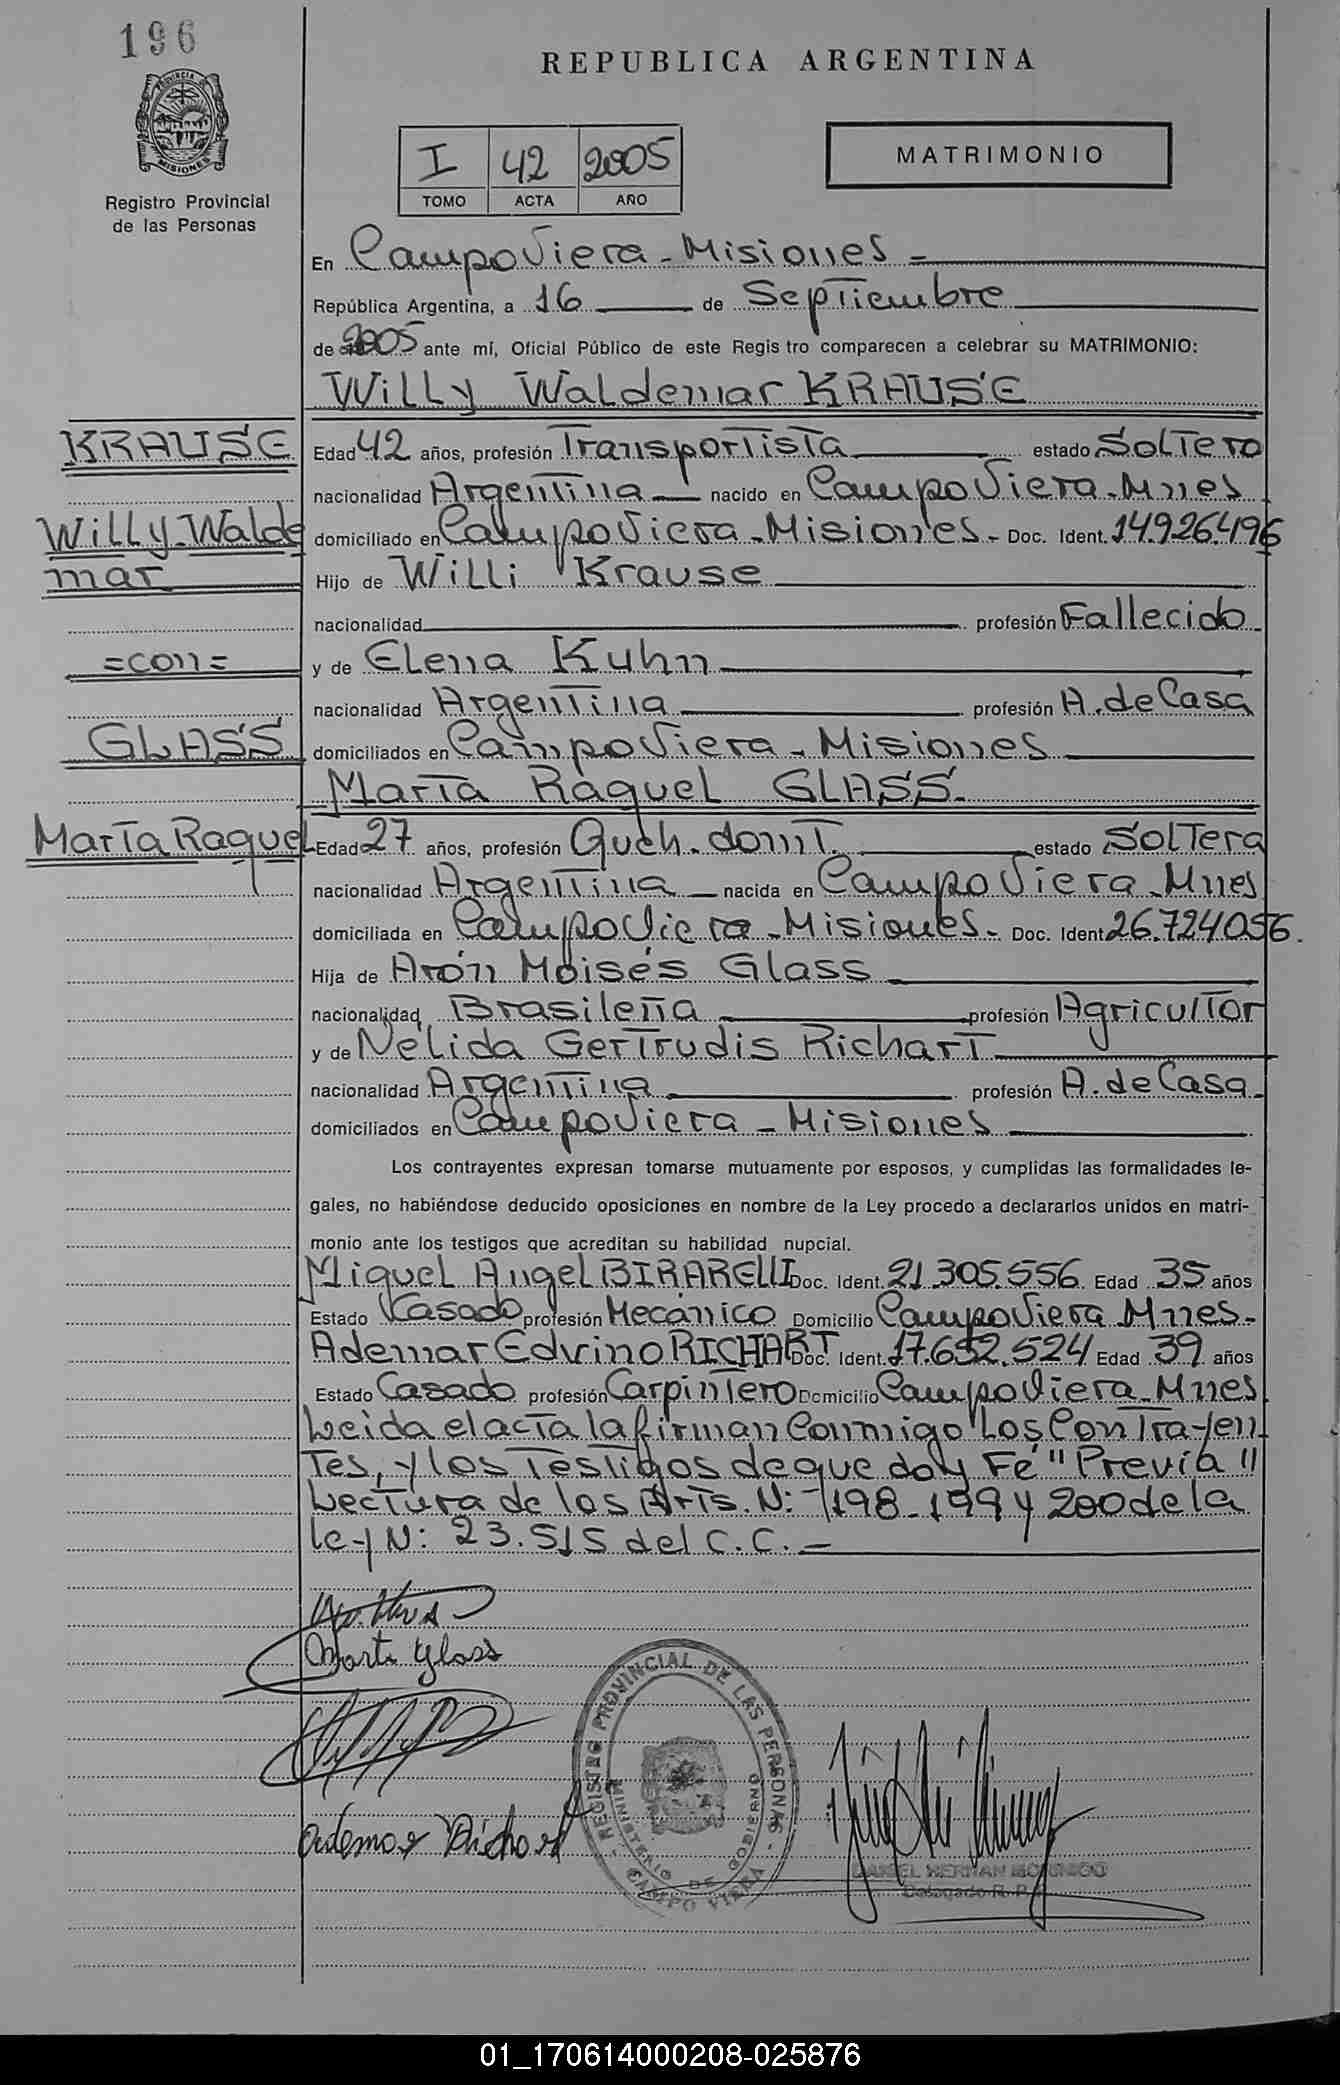 196
REPUBLICA ARGENTINA
PROVINCIA
MISIONES
Registro Provincial
de las Personas
I 42 2005
TOMO ACTA AÑO
MATRIMONIO
En Campo Viera - Misiones =
República Argentina, a 16 de Septiembre
de 2005 ante mí, Oficial Público de este Regis tro comparecen a celebrar su MATRIMONIO:
Willy Waldemar KRAUSE
KRAUSE
Edad 42 años, profesión Transportista estado Soltero
nacionalidad Argentina nacido en Campo Viera - Mnes
Willy Walde
domiciliado en Campo Viera - Misiones - Doc. Ident. 14.926.496
mar
Hijo de Willi Krause
nacionalidad profesión Fallecido
=con=
y de Elena Kuhn
nacionalidad Argentina profesión A. de Casa
GLASS
domiciliados en Campo Viera - Misiones
Marta Raquel GLASS.
Marta Raquel
Edad 27 años, profesión Queh. domt. estado Soltera
nacionalidad Argentina nacida en Campo Viera - Mnes
domiciliada en Campo Viera - Misiones - Doc. Ident 26.724.056.
Hija de Arón Moisés Glass
nacionalidad Brasileña profesión Agricultor
y de Nélida Gertrudis Richart
nacionalidad Argentina profesión A. de Casa
domiciliados en Campo Viera - Misiones
Los contrayentes expresan tomarse mutuamente por esposos, y cumplidas las formalidades le-
gales, no habiéndose deducido oposiciones en nombre de la Ley procedo a declararlos unidos en matri-
monio ante los testigos que acreditan su habilidad nupcial.
Miguel Angel BIRARELLI Doc. Ident. 21.305.556 Edad 35 años
Estado Casado profesión Mecánico Domicilio Campo Viera Mnes -
Ademar Edvino RICHART Doc. Ident. 17.652.524 Edad 39 años
Estado Casado profesión Carpintero Domicilio Campo Viera - Mnes
Leida el acta la firman Conmigo Los Contrayen
tes, y los Testigos de que doy Fé "Previa"
Lectura de los Arts. N: 198 - 199 y 200 de la
ley N: 23.515 del C.C. -
Marta Glass
REGISTRO PROVINCIAL DE LAS PERSONAS
MINISTERIO DE GOBIERNO
- CAMPO VIERA -
Ademar Richart
DANIEL HERNAN MORINIGO
Delegado R. P.
01_170614000208-025876